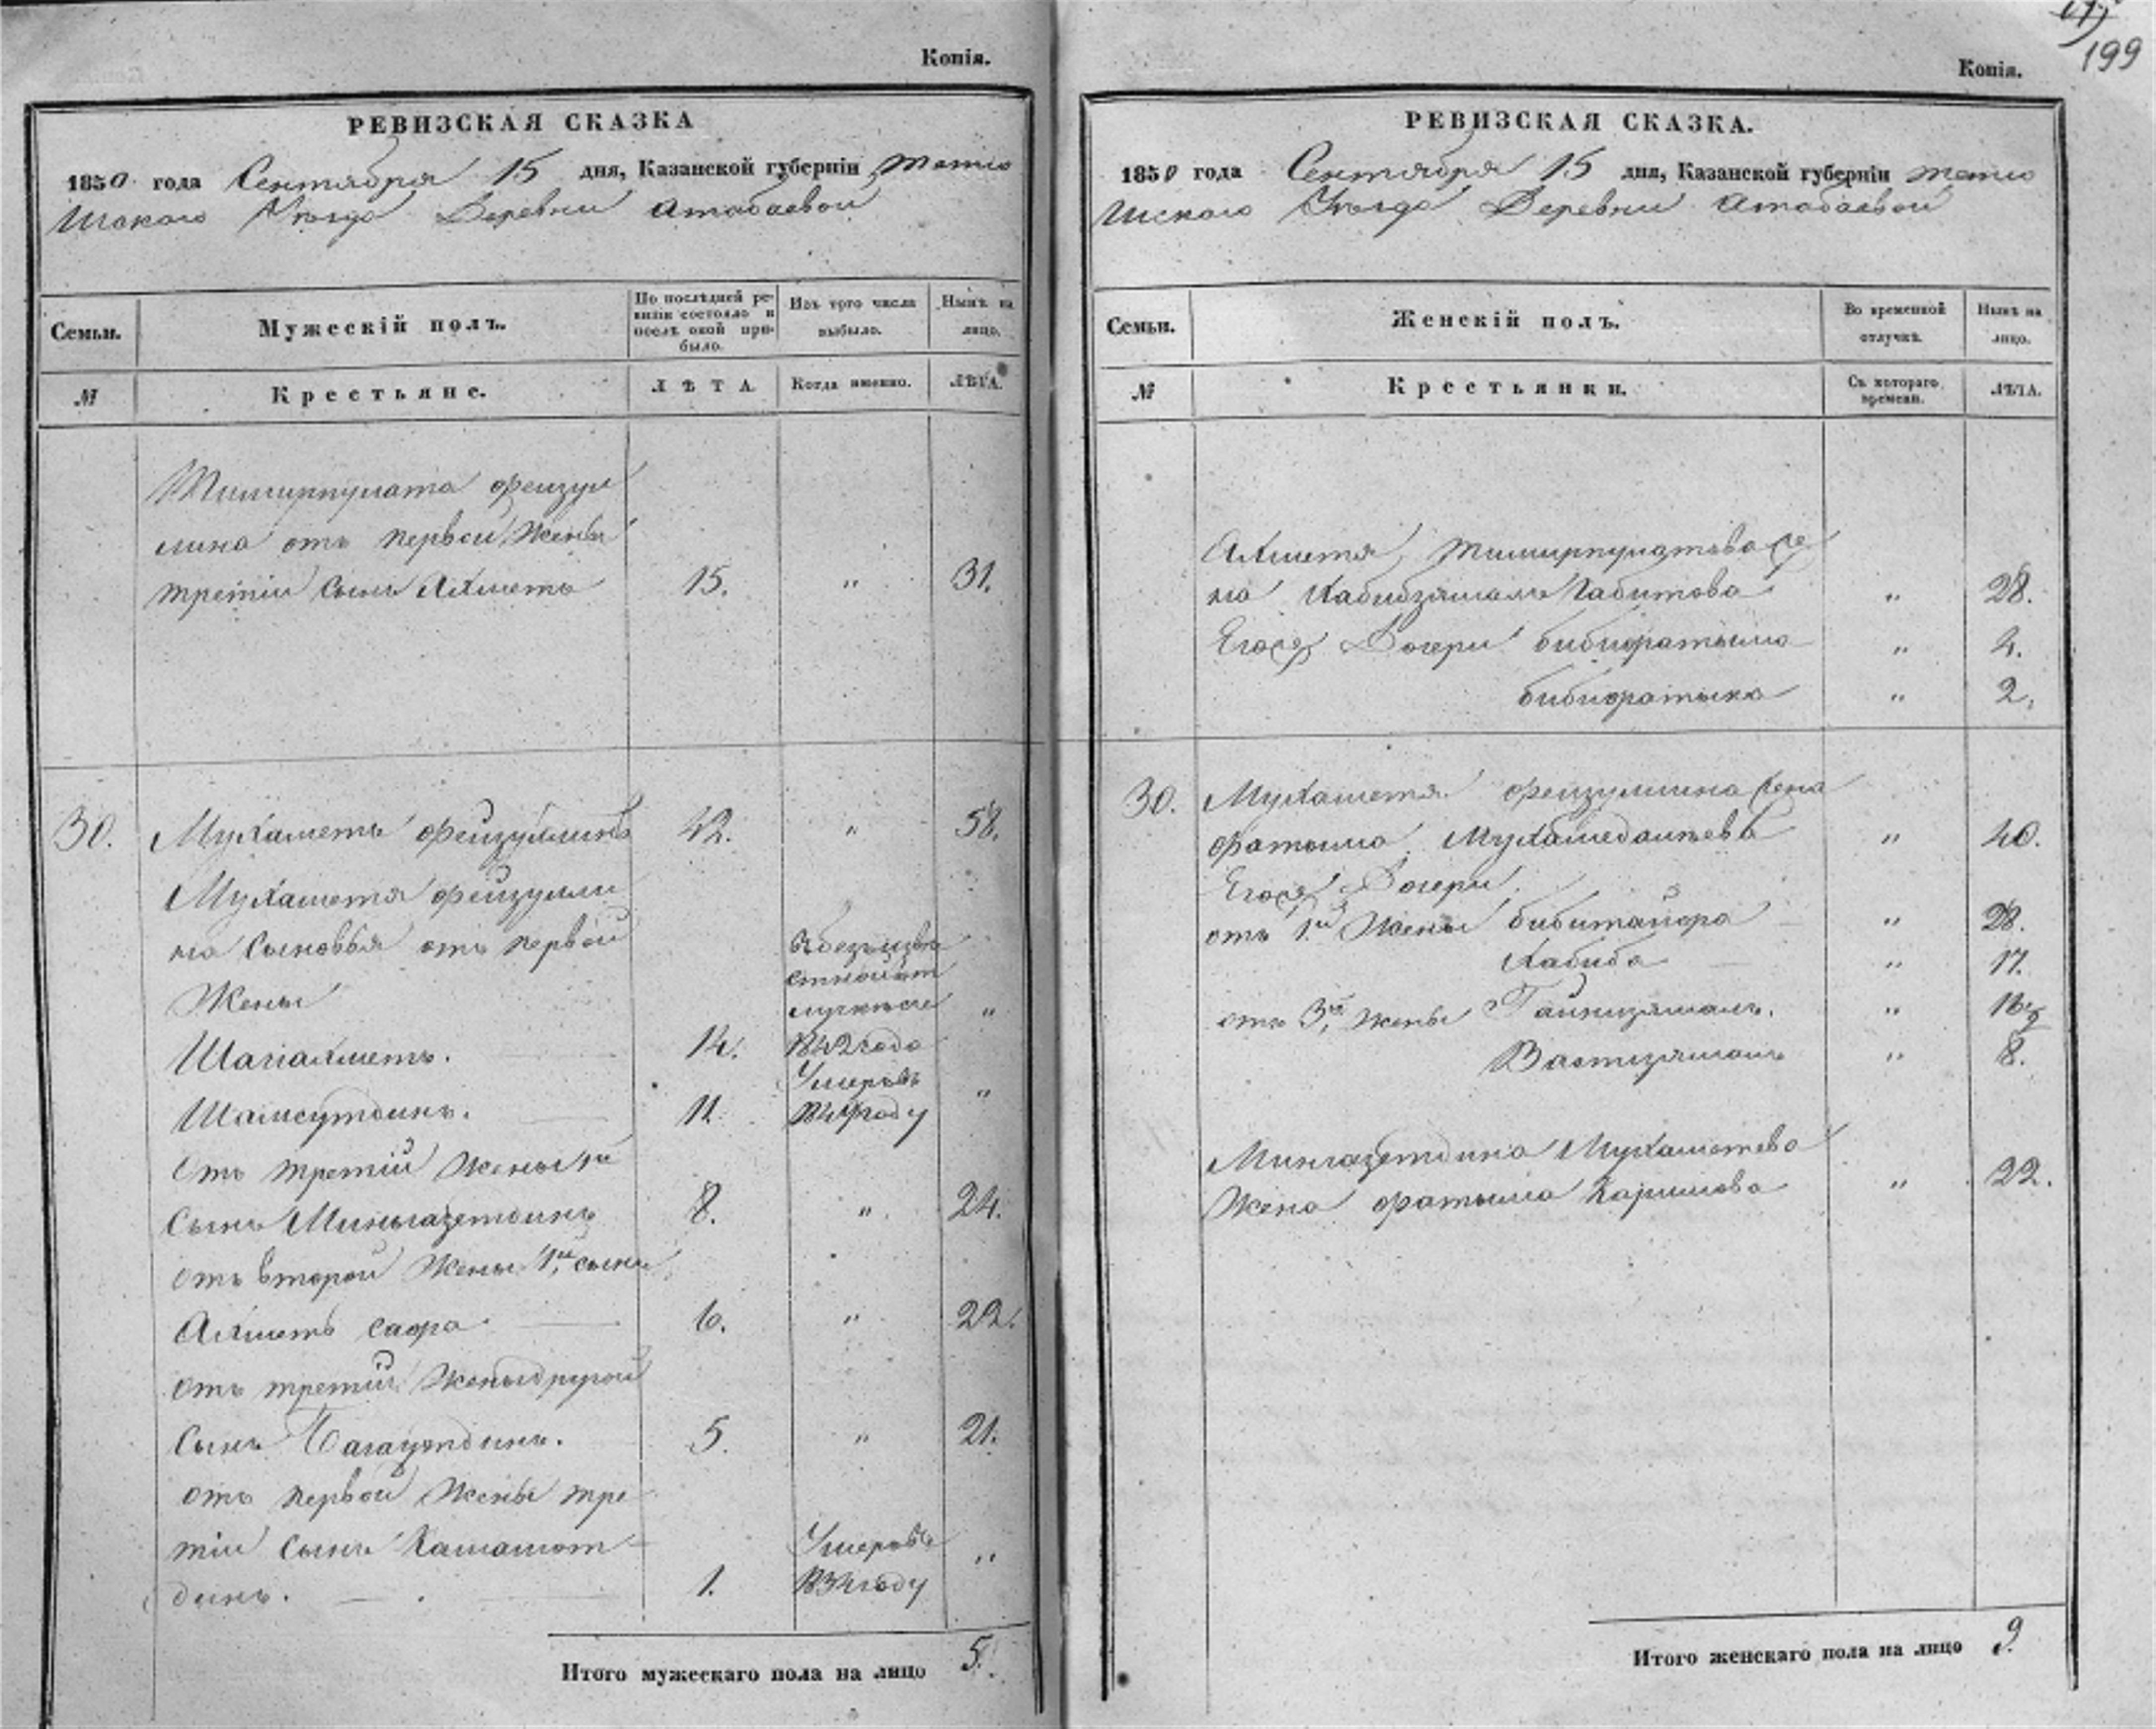 Копія.
РЕВИЗСКАЯ СКАЗКА
1850 года Сентября 15 дня, Казанской губерніи Тетю
шскаго Уѣзда Деревни Атабаевой
Семьи.
Мужескій полъ.
По послѣдней ре-
визіи состояло и
послѣ оной при-
было.
Изъ того числа
выбыло.
Нынѣ на
лицо.
№
Крестьяне.
ЛѢТА
Когда именно.
ЛѢТА.
Тимирпулата фейзул
лина отъ первой жены
третій сынъ Ахметь 15. " 31.
30. Мухаметь фейзуллинъ 42. " 58.
Мухаметя фейзулли
на сыновья отъ первой
жены
Шагіахметь. 14. 1842 года "
Шамсутдинъ. 11. Умеръ въ году "
отъ третій жены 1й
сынъ Мингазетдинъ 8. " 24.
отъ второй жены 1й сынъ
Ахметь сафа 6. " 22.
отъ третій жены другой
сынъ Багаутдинъ. 5. " 21.
отъ первой жены тре
тій сынъ Камалот
динъ. 1. Умеръ въ 1834 году "
Итого мужескаго пола на лицо 5.
199
Копія.
РЕВИЗСКАЯ СКАЗКА.
1850 года Сентября 15 дня, Казанской губерніи Тетю
шскаго Уѣзда Деревни Атабаевой
Семьи.
Женскій полъ.
Во временной
отлучкѣ.
Нынѣ на
лицо.
№
Крестьянки.
Съ котораго
времени.
ЛѢТА.
Ахметя Тимирпулатова же
на Хабибзямалъ Габитова " 28.
Егоже Дочери бибифатыма " 4.
бибифатыха " 2.
30. Мухаметя фейзуллина жена
фатыма Мухаметдаиѣва " 40.
Егоже Дочери
отъ 1й жены бибитайфа " 28.
Хабиба " 17.
отъ 3й жены Гайнизямалъ. "
Вастизямалъ " 8.
Мингазетдина Мухаметева
жена фатыма Каримова " 22.
Итого женскаго пола на лицо 9.